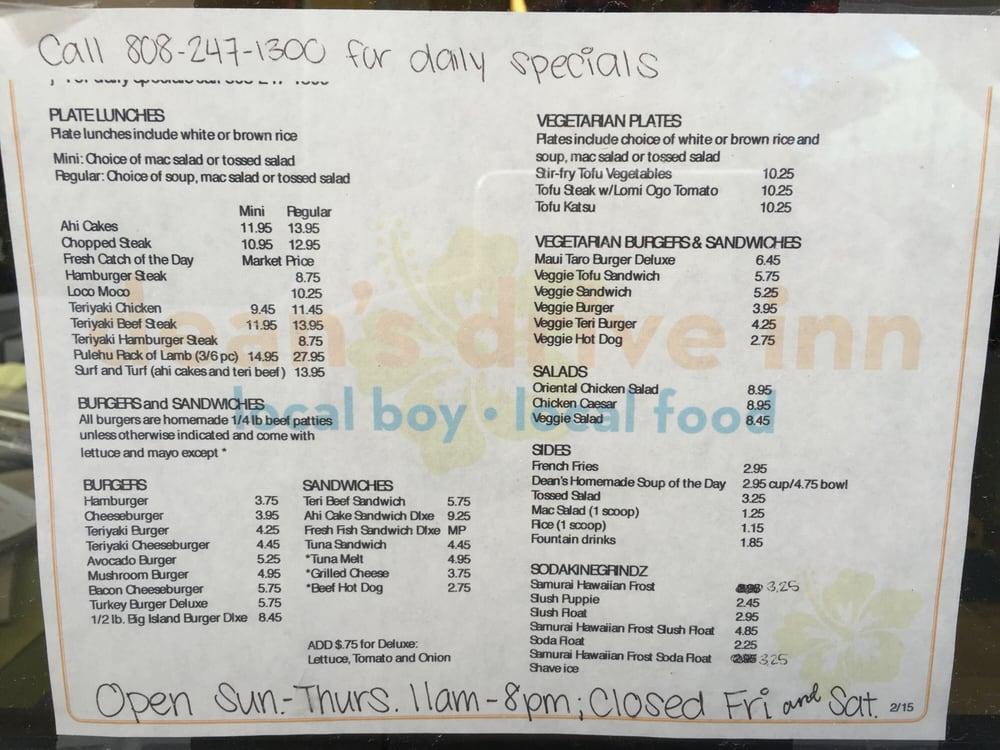 Call 808-247-1300 for daily specials
PLATE LUNCHES
Plate lunches include white or brown rice
Mini: Choice of mac salad or tossed salad
Regular: Choice of soup, mac salad or tossed salad
Mini Regular
Ahi Cakes 11.95 13.95
Chopped Steak 10.95 12.95
Fresh Catch of the Day Market Price
Hamburger Steak 8.75
Loco Moco 10.25
Teriyaki Chicken 9.45 11.45
Teriyaki Beef Steak 11.95 13.95
Teriyaki Hamburger Steak 8.75
Pulehu Rack of Lamb (3/6 pc) 14.95 27.95
Surf and Turf (ahi cakes and teri beef) 13.95
BURGERS and SANDWICHES
All burgers are homemade 1/4 lb beef patties
unless otherwise indicated and come with
lettuce and mayo except *
BURGERS
Hamburger 3.75
Cheeseburger 3.95
Teriyaki Burger 4.25
Teriyaki Cheeseburger 4.45
Avocado Burger 5.25
Mushroom Burger 4.95
Bacon Cheeseburger 5.75
Turkey Burger Deluxe 5.75
1/2 lb. Big Island Burger Dlxe 8.45
SANDWICHES
Teri Beef Sandwich 5.75
Ahi Cake Sandwich Dlxe 9.25
Fresh Fish Sandwich Dlxe MP
Tuna Sandwich 4.45
*Tuna Melt 4.95
*Grilled Cheese 3.75
*Beef Hot Dog 2.75
ADD $.75 for Deluxe:
Lettuce, Tomato and Onion
VEGETARIAN PLATES
Plates include choice of white or brown rice and
soup, mac salad or tossed salad
Stir-fry Tofu Vegetables 10.25
Tofu Steak w/Lomi Ogo Tomato 10.25
Tofu Katsu 10.25
VEGETARIAN BURGERS & SANDWICHES
Maui Taro Burger Deluxe 6.45
Veggie Tofu Sandwich 5.75
Veggie Sandwich 5.25
Veggie Burger 3.95
Veggie Teri Burger 4.25
Veggie Hot Dog 2.75
SALADS
Oriental Chicken Salad 8.95
Chicken Caesar 8.95
Veggie Salad 8.45
SIDES
French Fries 2.95
Dean's Homemade Soup of the Day 2.95 cup/4.75 bowl
Tossed Salad 3.25
Mac Salad (1 scoop) 1.25
Rice (1 scoop) 1.15
Fountain drinks 1.85
SODAKINEGRINDZ
Samurai Hawaiian Frost 3.25
Slush Puppie 2.45
Slush Float 2.95
Samurai Hawaiian Frost Slush Float 4.85
Soda Float 2.25
Samurai Hawaiian Frost Soda Float 3.25
Shave ice
dean's drive inn
local boy • local food
Open Sun.-Thurs. 11am-8pm; Closed Fri and Sat.
2/15